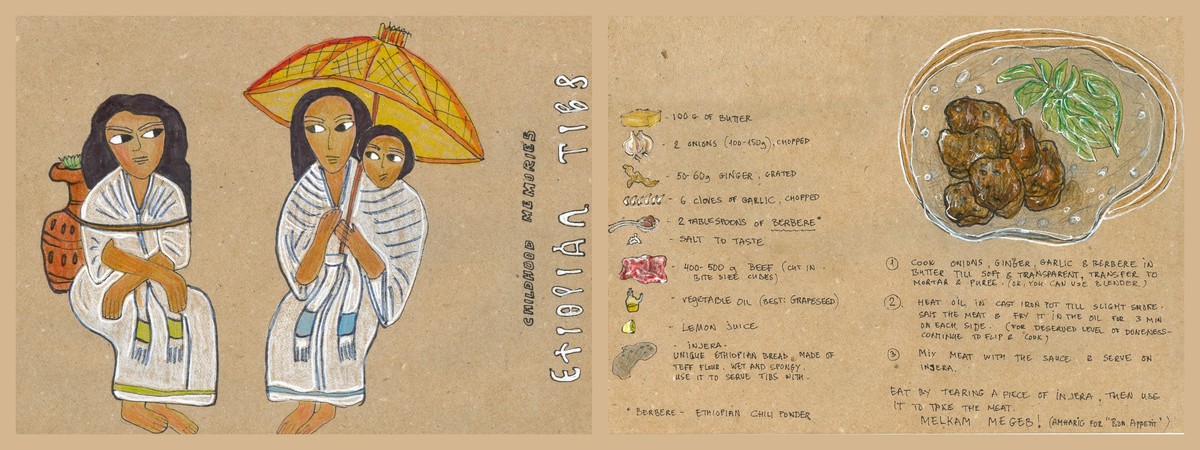 CHILDHOOD MEMORIES
ETIOPIAN TIBS
- 100 G OF BUTTER
- 2 ONIONS (100-150g), CHOPPED
- 50-60g GINGER, GRATED
- 6 CLOVES OF GARLIC, CHOPPED
- 2 TABLESPOONS OF BERBERE*
- SALT TO TASTE
- 400-500 g BEEF (CUT IN
BITE SIZE CUBES)
- VEGETABLE OIL (BEST: GRAPESEED)
- LEMON JUICE
- INJERA -
UNIQUE ETHIOPIAN BREAD, MADE OF
TEFF FLOUR. WET AND SPONGY.
USE IT TO SERVE TIBS WITH.
* BERBERE - ETHIOPIAN CHILI POWDER
1 COOK ONIONS, GINGER, GARLIC & BERBERE IN
BUTTER TILL SOFT & TRANSPARENT, TRANSFER TO
MORTAR & PUREE. (OR, YOU CAN USE BLENDER)
2. HEAT OIL IN CAST IRON POT TILL SLIGHT SMOKE.
SALT THE MEAT & FRY IT IN THE OIL FOR 3 MIN
ON EACH SIDE. (FOR DESERVED LEVEL OF DONENESS-
CONTINUE TO FLIP & COOK)
3 MIX MEAT WITH THE SAUCE & SERVE ON
INJERA.
EAT BY TEARING A PIECE OF INJERA, THEN USE
IT TO TAKE THE MEAT.
MELKAM MEGEB! (AMHARIG FOR "BON APPETIT")